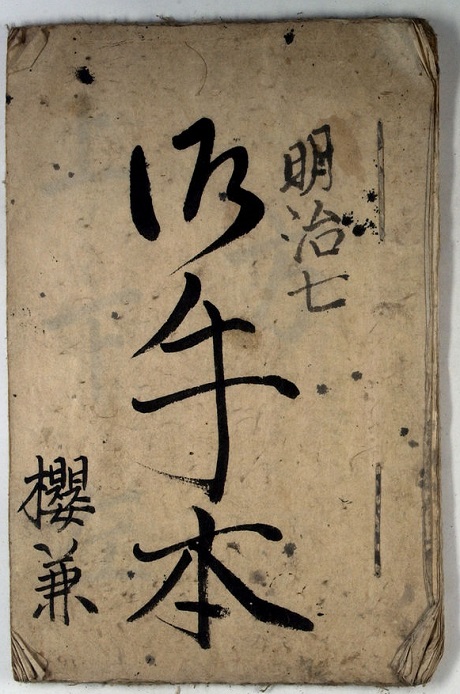 明治七
御手本
櫻兼